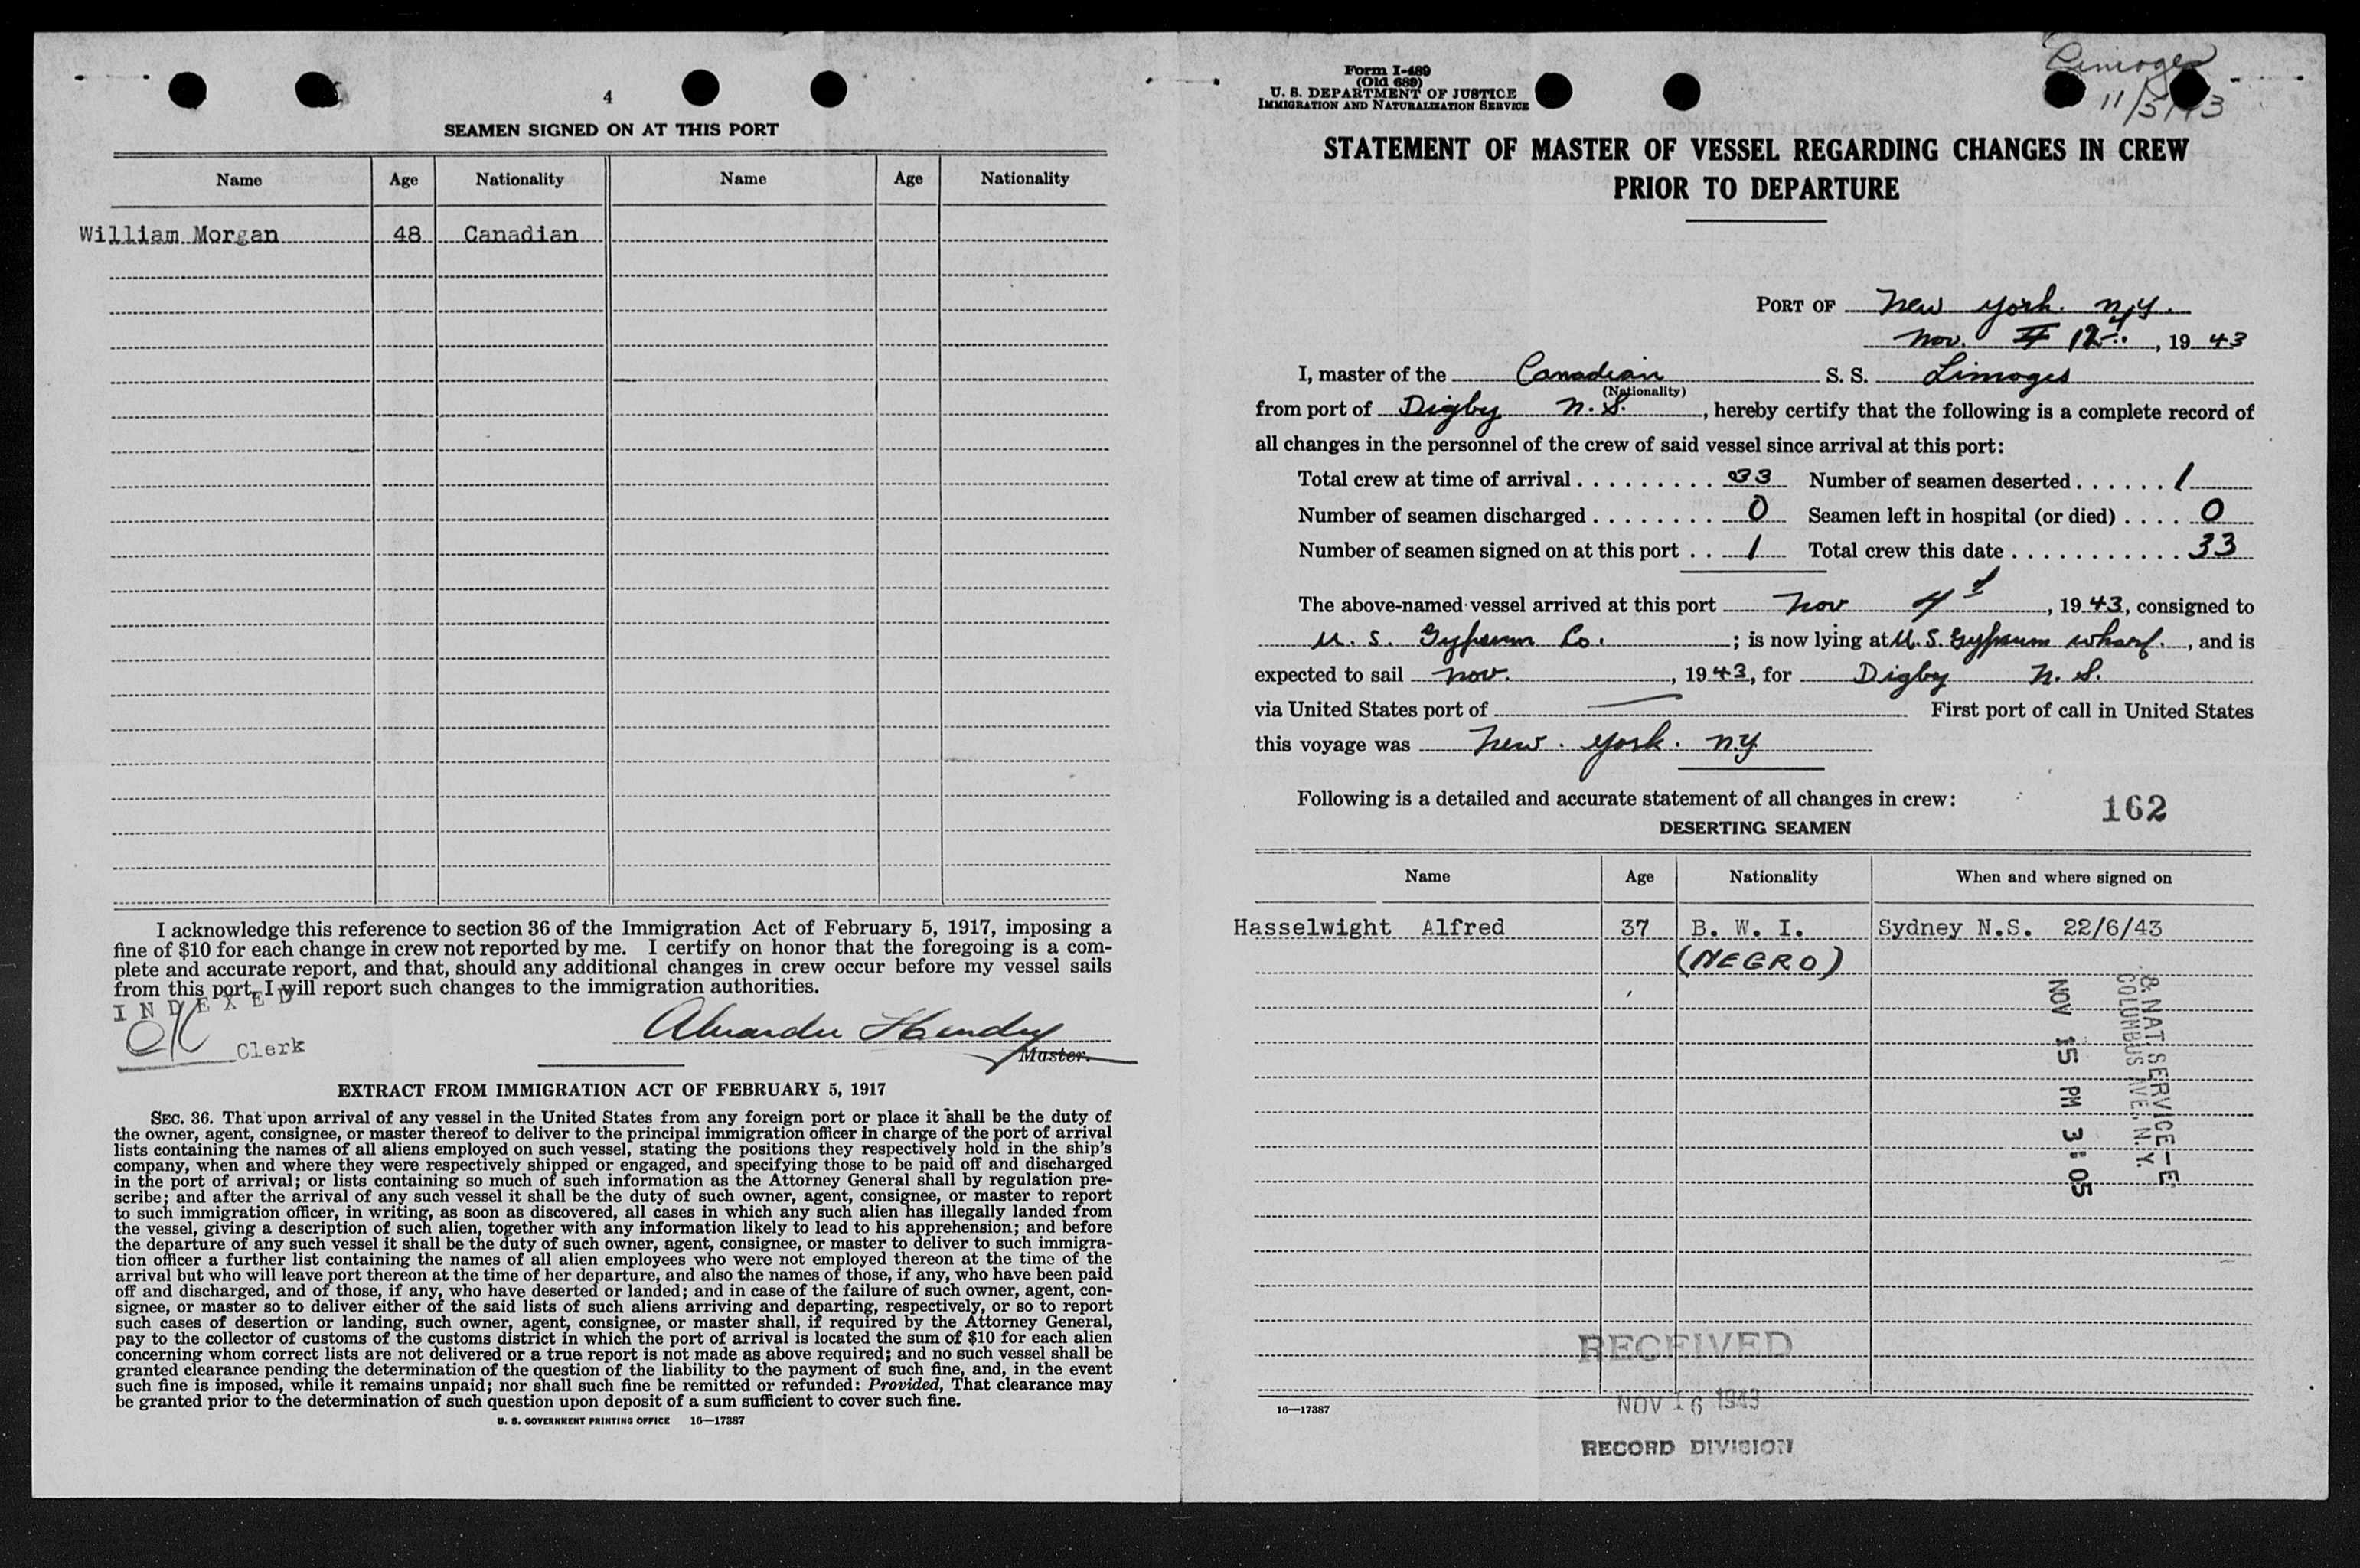 4
SEAMEN SIGNED ON AT THIS PORT
Name Age Nationality Name Age Nationality
William Morgan 48 Canadian
I acknowledge this reference to section 36 of the Immigration Act of February 5, 1917, imposing a
fine of $10 for each change in crew not reported by me. I certify on honor that the foregoing is a com-
plete and accurate report, and that, should any additional changes in crew occur before my vessel sails
from this port, I will report such changes to the immigration authorities.
INDEXED
OK Clerk
Alexander Hendry
Master.
EXTRACT FROM IMMIGRATION ACT OF FEBRUARY 5, 1917
SEC. 36. That upon arrival of any vessel in the United States from any foreign port or place it shall be the duty of
the owner, agent, consignee, or master thereof to deliver to the principal immigration officer in charge of the port of arrival
lists containing the names of all aliens employed on such vessel, stating the positions they respectively hold in the ship's
company, when and where they were respectively shipped or engaged, and specifying those to be paid off and discharged
in the port of arrival; or lists containing so much of such information as the Attorney General shall by regulation pre-
scribe; and after the arrival of any such vessel it shall be the duty of such owner, agent, consignee, or master to report
to such immigration officer, in writing, as soon as discovered, all cases in which any such alien has illegally landed from
the vessel, giving a description of such alien, together with any information likely to lead to his apprehension; and before
the departure of any such vessel it shall be the duty of such owner, agent, consignee, or master to deliver to such immigra-
tion officer a further list containing the names of all alien employees who were not employed thereon at the time of the
arrival but who will leave port thereon at the time of her departure, and also the names of those, if any, who have been paid
off and discharged, and of those, if any, who have deserted or landed; and in case of the failure of such owner, agent, con-
signee, or master so to deliver either of the said lists of such aliens arriving and departing, respectively, or so to report
such cases of desertion or landing, such owner, agent, consignee, or master shall, if required by the Attorney General,
pay to the collector of customs of the customs district in which the port of arrival is located the sum of $10 for each alien
concerning whom correct lists are not delivered or a true report is not made as above required; and no such vessel shall be
granted clearance pending the determination of the question of the liability to the payment of such fine, and, in the event
such fine is imposed, while it remains unpaid; nor shall such fine be remitted or refunded: Provided, That clearance may
be granted prior to the determination of such question upon deposit of a sum sufficient to cover such fine.
U. S. GOVERNMENT PRINTING OFFICE 16—17387
Form I-489
(Old 689)
U. S. DEPARTMENT OF JUSTICE
IMMIGRATION AND NATURALIZATION SERVICE
Limoges
11/5/43
STATEMENT OF MASTER OF VESSEL REGARDING CHANGES IN CREW
PRIOR TO DEPARTURE
PORT OF New York. N.Y.
Nov. 12, 1943
I, master of the Canadian S. S. Limoges
(Nationality)
from port of Digby N.S., hereby certify that the following is a complete record of
all changes in the personnel of the crew of said vessel since arrival at this port:
Total crew at time of arrival . . . . . . . . . 33 Number of seamen deserted . . . . . . 1
Number of seamen discharged . . . . . . . . 0 Seamen left in hospital (or died) . . . . 0
Number of seamen signed on at this port . . 1 Total crew this date . . . . . . . . . . . 33
The above-named vessel arrived at this port Nov 4, 1943, consigned to
U. S. Gypsum Co. ; is now lying at U.S. Gypsum wharf., and is
expected to sail Nov. , 1943, for Digby N. S.
via United States port of — First port of call in United States
this voyage was New. York. NY
Following is a detailed and accurate statement of all changes in crew:
162
DESERTING SEAMEN
Name Age Nationality When and where signed on
Hasselwight Alfred 37 B. W. I. Sydney N.S. 22/6/43
(NEGRO)
& NAT. SERVICE—E
COLUMBUS AVE., N.Y.
NOV 15 PM 3:05
RECEIVED
NOV 16 1943
RECORD DIVISION
16—17387